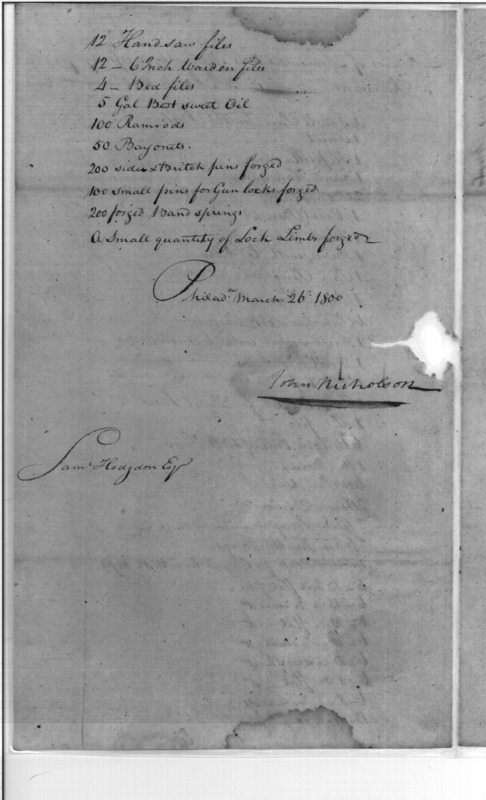 12 Handsaw files
12 - 6 Inch Wardin files
4 - Bed files
5 Gal Best sweet Oil
100 Ramrods
50 Bayonets.
200 side & Britch pins forged
100 small pins for Gun locks forged
200 forged Band springs
a small quantity of Lock Limbs forged
Philada March 26th 1800
John Nicholson
Saml Hodgdon Esqr